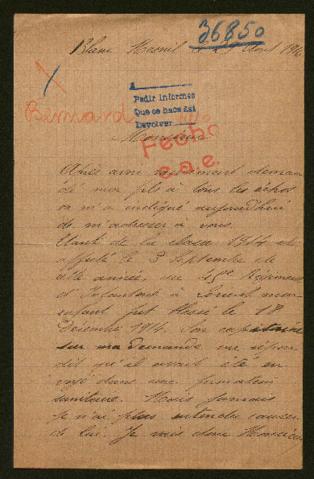 36850
Blanc Mesnil le Avril 1916
A
Pedir informes
Que ce hace así
Devolver
Bernard
Monsieur
Fecho
s.a.e.
Après avoir vainement deman
dé mon fils à tous les échos
on m'a indiqué aujourd'hui
de m'adresser à vous.
Étant de la classe 1914 et
affecté le 3 Septembre de
cette année au Régiment
d'Infanterie à Lorient mon
enfant fut blessé le 18
Décembre 1914. Son capitaine
sur ma demande me répon
dit qu'il avait été en
voyé dans une formation
sanitaire. Mais jamais
je n'ai plus entendu causer
de lui. Je viens donc Monsieur